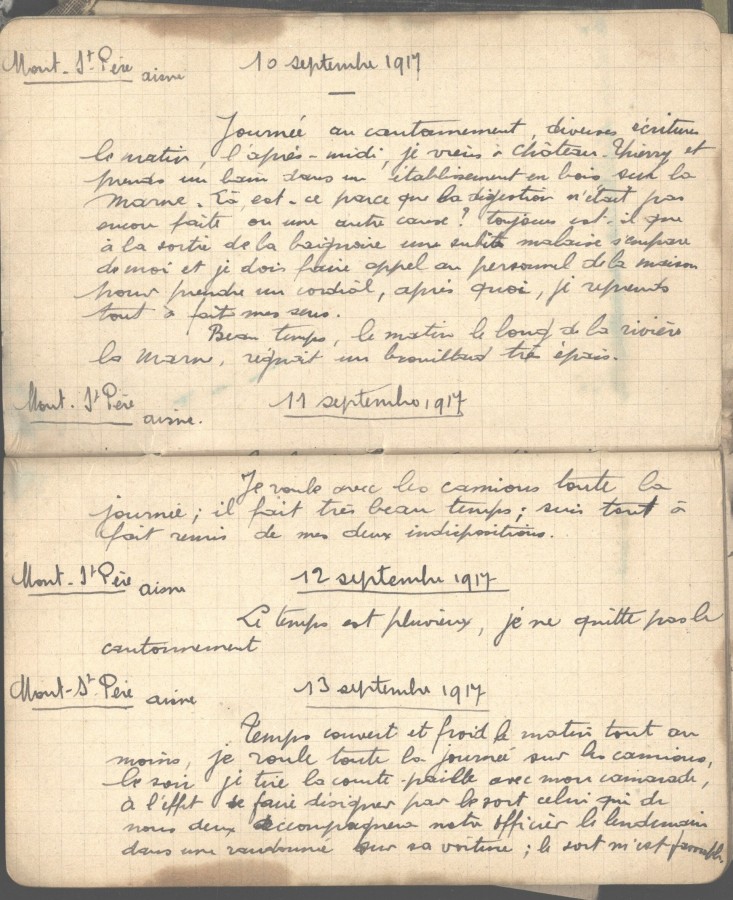 Mont-St-Père aisne 10 septembre 1917
Journée au cantonnement, diverses écritures
le matin, l'après-midi, je viens à Château-Thierry et
prends un bain dans un établissement en bois sur la
Marne. Là, est-ce parce que la digestion n'était pas
encore faite ou une autre cause? toujours est-il que
à la sortie de la baignoire une subite malaise s'empare
de moi et je dois faire appel au personnel de la maison
pour prendre un cordial, après quoi, je reprends
tout à fait mes sens.
Beau temps, le matin le long de la rivière
la Marne, régnait un brouillard très épais.
Mont-St-Père aisne. 11 septembre 1917
Je roule avec les camions toute la
journée; il fait très beau temps; suis tout à
fait remis de mes deux indispositions.
Mont-St-Père aisne 12 septembre 1917
Le temps est pluvieux, je ne quitte pas le
cantonnement
Mont-St-Père aisne 13 septembre 1917
Temps couvert et froid le matin tout au
moins, je roule toute la journée sur les camions,
le soir je tire la courte-paille avec mon camarade,
à l'effet de faire désigner par le sort celui qui de
nous deux accompagnera notre officier le lendemain
dans une randonnée sur sa voiture; le sort m'est favorable.